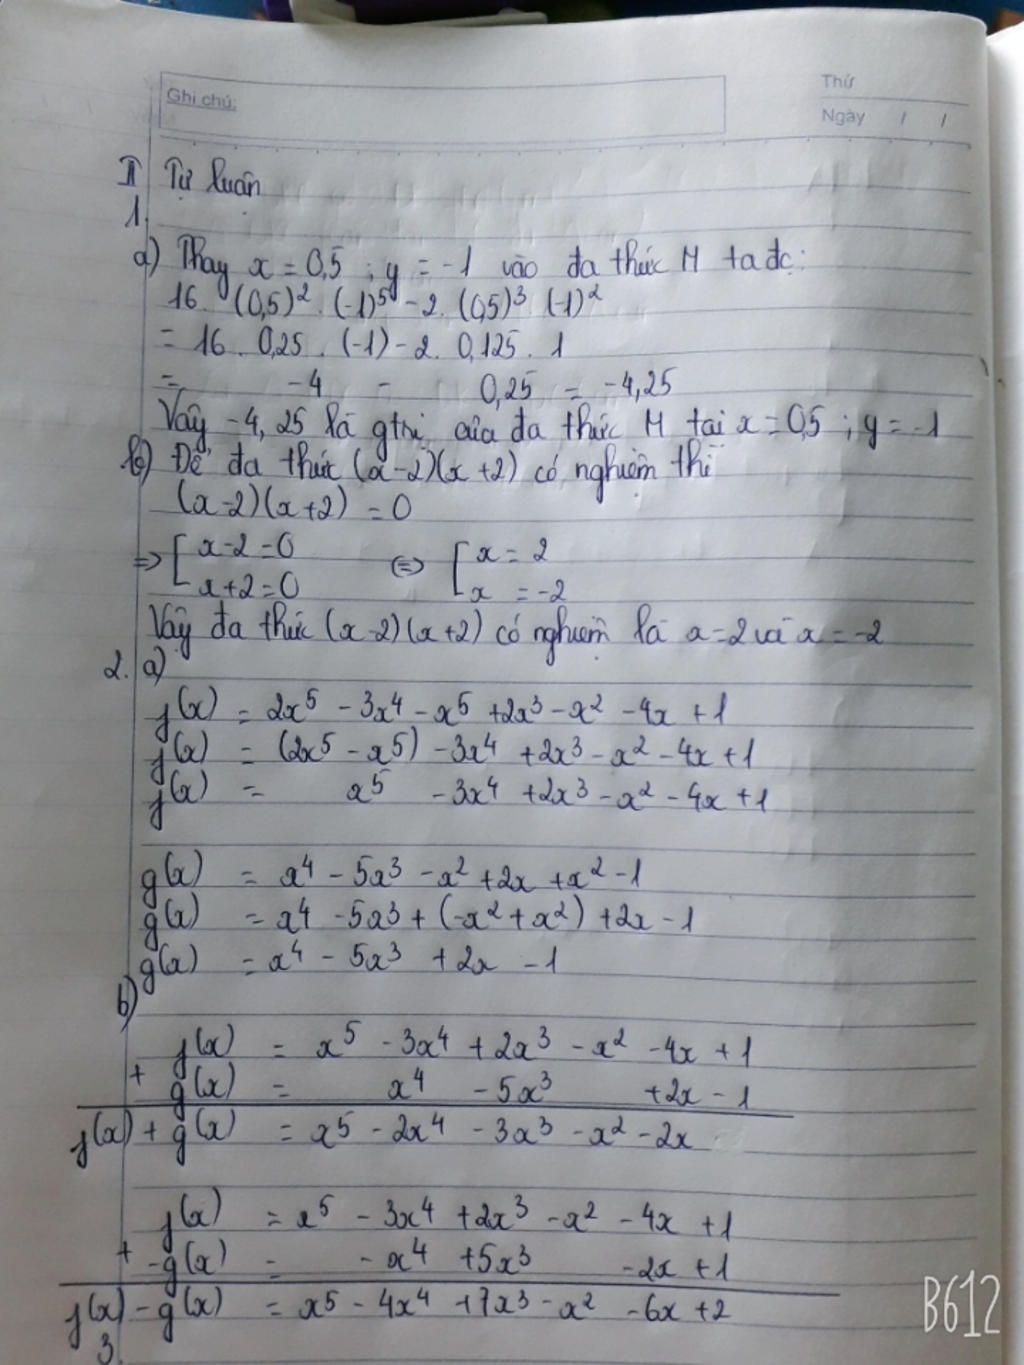 Ghi chú:
Thứ
Ngày / /
II Tự luận
1.
a) Thay x = 0,5 ; y = -1 vào đa thức M ta đc:
16 . (0,5)² . (-1)⁵ - 2 . (0,5)³ . (-1)²
= 16 . 0,25 . (-1) - 2 . 0,125 . 1
= -4 - 0,25 = -4,25
Vậy -4,25 là gtrị của đa thức M tại x = 0,5 ; y = -1
b) Để đa thức (x-2)(x+2) có nghiệm thì
(x-2)(x+2) = 0
=> [ x-2=0 <=> [ x = 2
x+2=0 x = -2
Vậy đa thức (x-2)(x+2) có nghiệm là x=2 và x=-2
2. a)
f(x) = 2x⁵ - 3x⁴ - x⁵ + 2x³ - x² - 4x + 1
f(x) = (2x⁵ - x⁵) - 3x⁴ + 2x³ - x² - 4x + 1
f(x) = x⁵ - 3x⁴ + 2x³ - x² - 4x + 1
g(x) = x⁴ - 5x³ - x² + 2x + x² - 1
g(x) = x⁴ - 5x³ + (-x² + x²) + 2x - 1
g(x) = x⁴ - 5x³ + 2x - 1
b)
f(x) = x⁵ - 3x⁴ + 2x³ - x² - 4x + 1
+ g(x) = x⁴ - 5x³ + 2x - 1
f(x) + g(x) = x⁵ - 2x⁴ - 3x³ - x² - 2x
f(x) = x⁵ - 3x⁴ + 2x³ - x² - 4x + 1
+ -g(x) = - x⁴ + 5x³ - 2x + 1
f(x) - g(x) = x⁵ - 4x⁴ + 7x³ - x² - 6x + 2
3.
B612